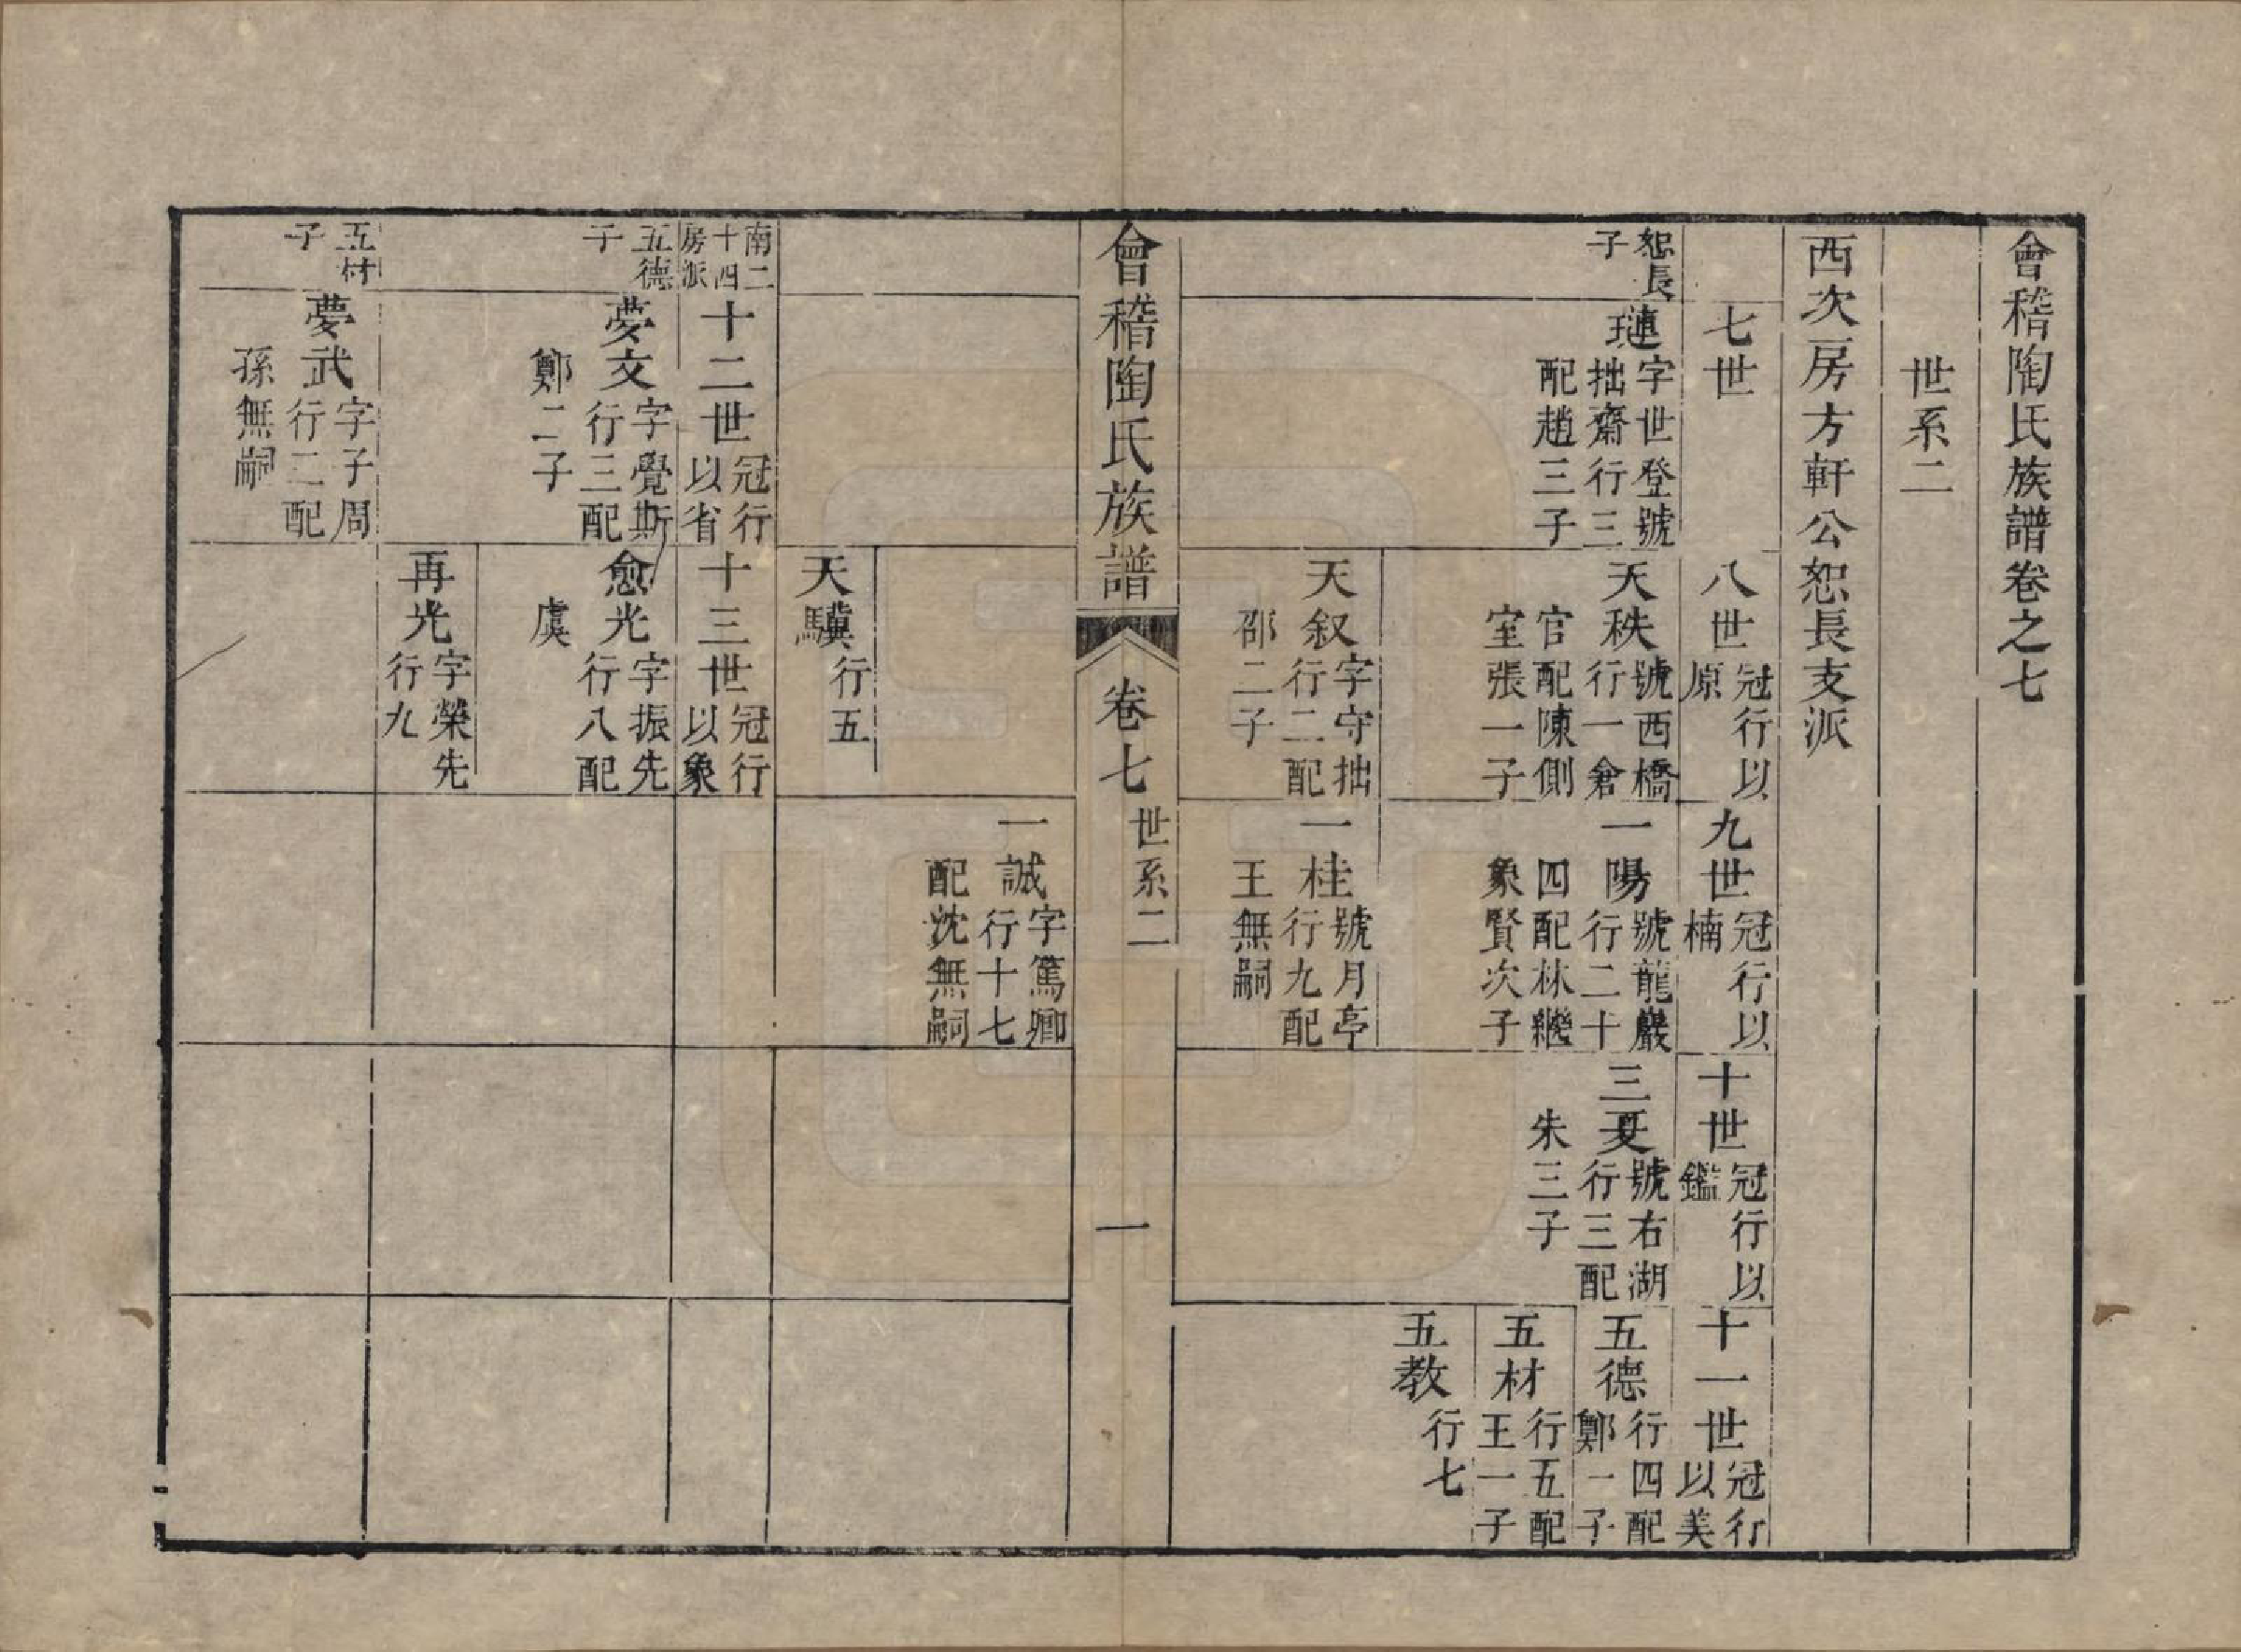 會稽陶氏族譜卷之七
世系二
西次房方軒公恕長支派
七世
八世 冠行以原
九世 冠行以楠
十世 冠行以鑑
十一世 冠行以美
恕長子
璉 字世登號拙齋行三配趙三子
天秩 號西橋行一倉官配陳側室張一子
一陽 號龍巖行二十四配林繼象賢次子
三夏 號右湖行三配朱三子
五德 行四配鄭一子
五材 行五配王一子
五教 行七
天叙 字守拙行二配邵二子
一桂 號月亭行九配王無嗣
會稽陶氏族譜 卷七 世系二 一
一誠 字篤卿行十七配沈無嗣
天驥 行五
南二十四房派
十二世 冠行以省
十三世 冠行以象
五德子
夢文 字覺斯行三配鄭二子
愈光 字振先行八配虞
再光 字榮先行九
五材子
夢武 字子周行二配孫無嗣